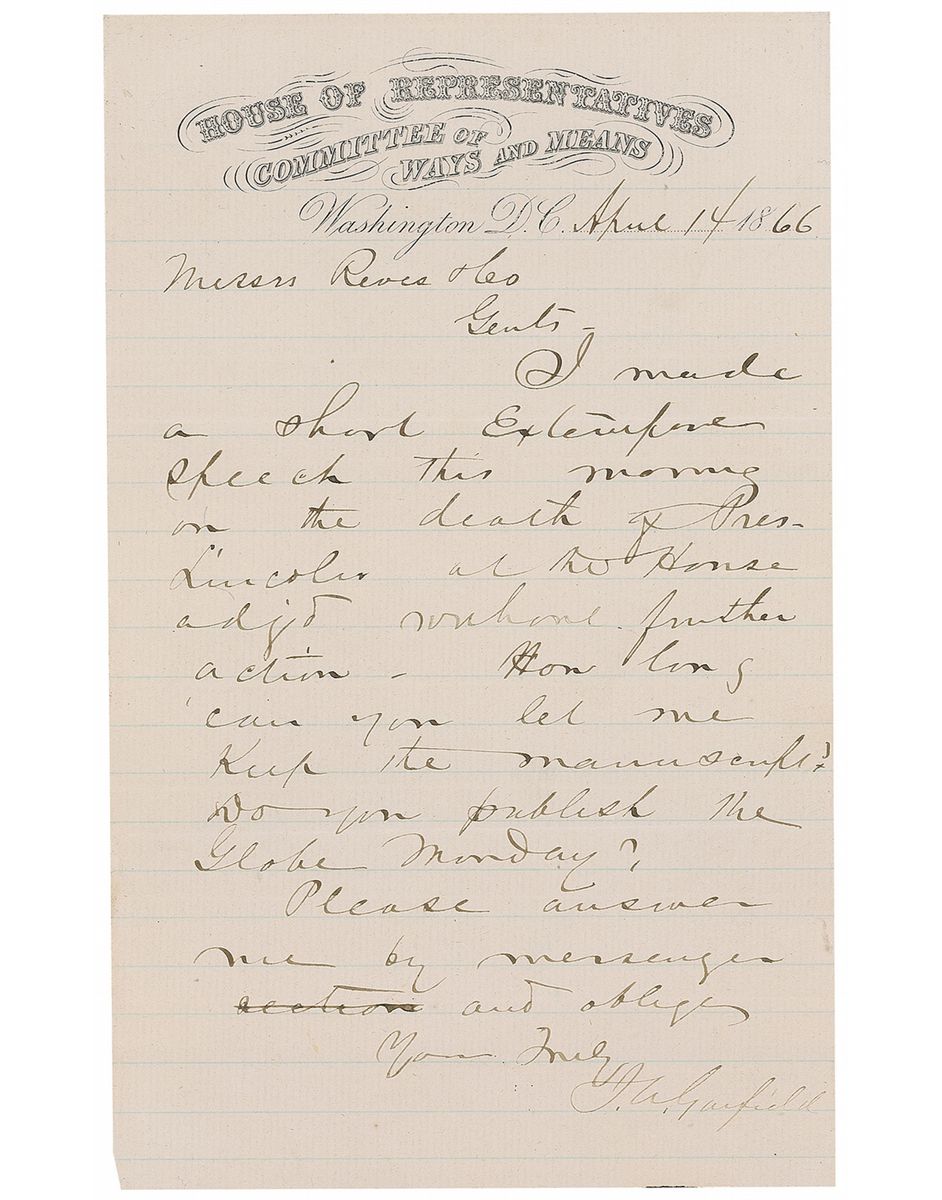 HOUSE OF REPRESENTATIVES
COMMITTEE OF WAYS AND MEANS
Washington D.C. April 14 1866
Messrs Reves & Co
Gents -
I made
a short Extempore
speech this morning
on the death of Pres-
Lincoln at the House
adj'd without further
action - How long
can you let me
Keep the manuscript?
Do you publish the
Globe Monday?
Please answer
me by messenger
action and oblige
Yours Truly
J. A. Garfield